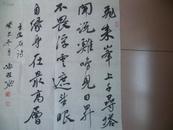 飛來峯上千尋塔
聞說雞鳴見日昇
不畏浮雲遮望眼
自緣身在最高層
王安石詩